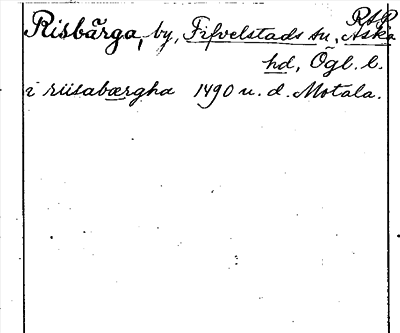 RAP
Risbärga, by, Fifvelstads sn, Aska
hd, Ögl. l.
i riisabærgha 1490 u. d. Motala.